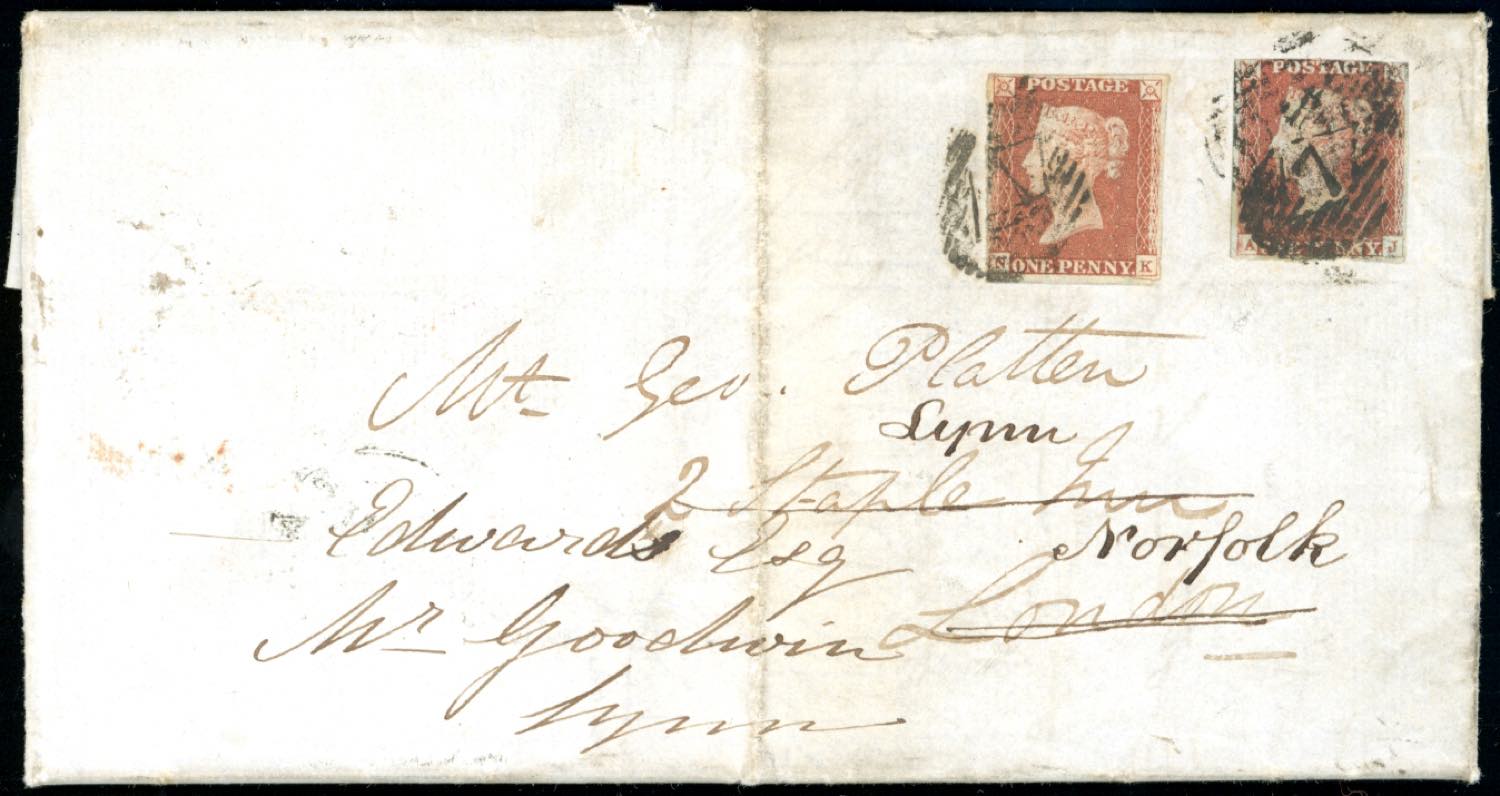 POSTAGE
N ONE PENNY K
POSTAGE
7
A ONE PENNY J
Mr Geo. Platten
Lynn
2 Staple Inn
Edwards Esq
Norfolk
London
Mr Goodwin
Lynn